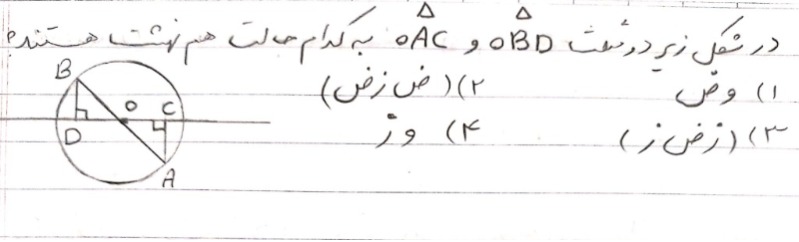 در شکل زیر دو مثلث OBD و OAC به کدام حالت هم نهشت هستند؟
۱) وض ۲) (ض ز ض)
۳) (ز ض ز) ۴) وز
B
O C
D
A